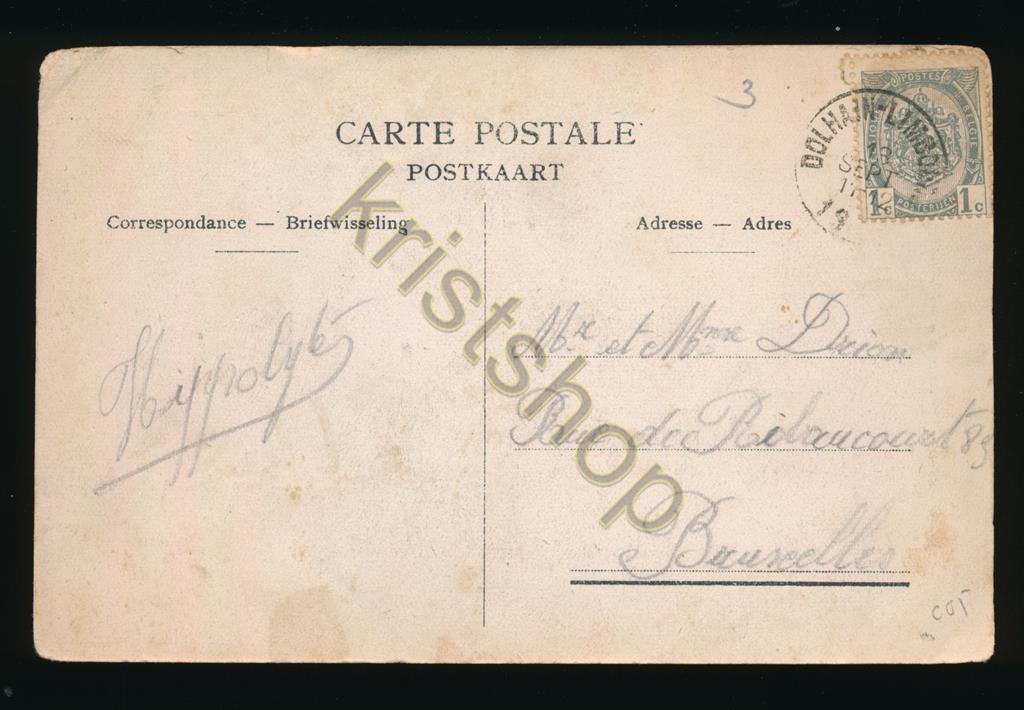 3
CARTE POSTALE
POSTKAART
Correspondance — Briefwisseling
Adresse — Adres
POSTES
POSTERIJEN
1c 1c
DOLHAIN-LIMBOURG
SEPT
Hippolyte
Mr et Mme Drion
Rue de Ribaucourt 83
Bruxelles
kristshop
COT